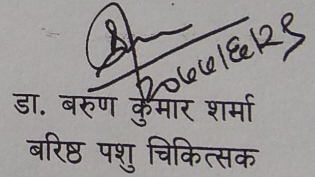 २०७७।६।२९
डा. बरुण कुमार शर्मा
बरिष्ठ पशु चिकित्सक